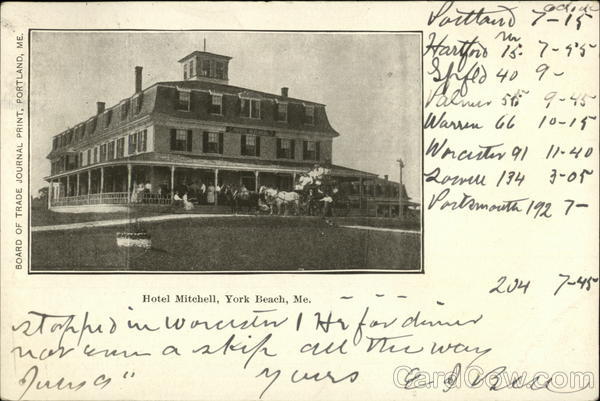 BOARD OF TRADE JOURNAL PRINT, PORTLAND, ME.
Portland 7-15
Hartford 15 7-55
Spfld 40 9-
Palmer 55 9-45
Warren 66 10-15
Worcester 91 11-40
Lowell 134 3-05
Portsmouth 192 7-
204 7-45
Hotel Mitchell, York Beach, Me.
stopped in Worcister 1 Hr for dinner
not even a skip all the way
yours
CardCow.com